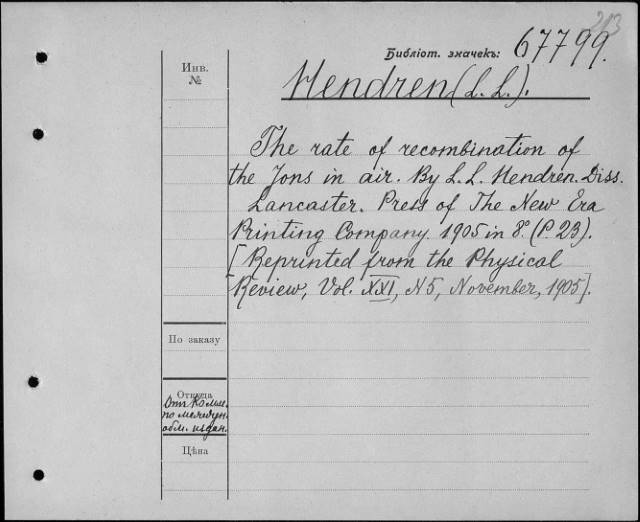 213
Библіот. значекъ: 67799.
Инв.
№
Hendren (L. L.).
The rate of recombination of
the Jons in air. By L. L. Hendren. Diss.
Lancaster. Press of The New Era
Printing Company. 1905 in 8°. (P. 23).
[Reprinted from the Physical
Review, Vol. XXI, N5, November, 1905].
По заказу
Откуда
Отъ Комис.
по междун.
обм. издан.
Цѣна